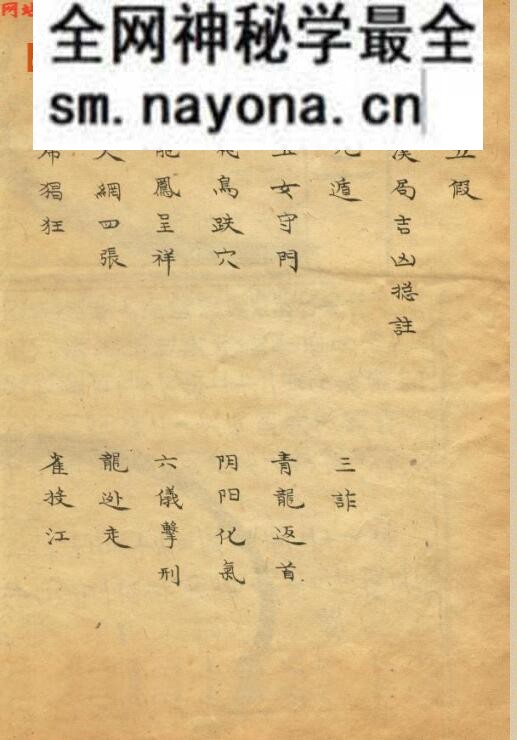 全网神秘学最全
sm.nayona.cn
假
局吉凶揔註
遁
三詐
女守門
青龍返首
鳥跌穴
阴阳化氣
鳳呈祥
六儀擊刑
網四張
龍迯走
猖狂
雀投江